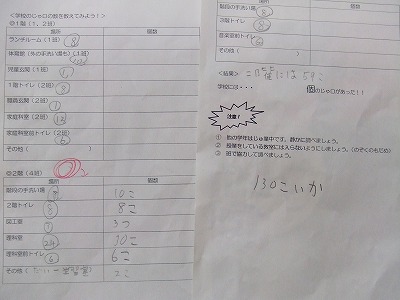 <学校のじゃ口の数を数えてみよう！>
◎1階（1、2班）
場所 個数
ランチルーム（1班） 8
体育館（外の手洗い場も）（1班）
児童玄関（1班）
1階トイレ（2班） 3
職員玄関（2班） 1
家庭科室（2班） 12
家庭科室前トイレ（2班） 6
その他（ ）
◎2階（4班）
場所 個数
階段の手洗い場 10こ
2階トイレ 8 8こ
図工室 3つ
理科室 24 30こ
理科室前トイレ 6 6こ
その他（ 2こ
階段の手洗い場
3階トイレ 8
音楽室前トイレ 6
その他（
<結果>
学校には・・・ 個のじゃ口があった！！
注意！
① 他の学年はじゅ業中です。静かに調べましょう。
② 授業をしている教室には入らないようにしましょう。（のぞくのもだめ）
③ 班で協力して調べましょう。
130こいか